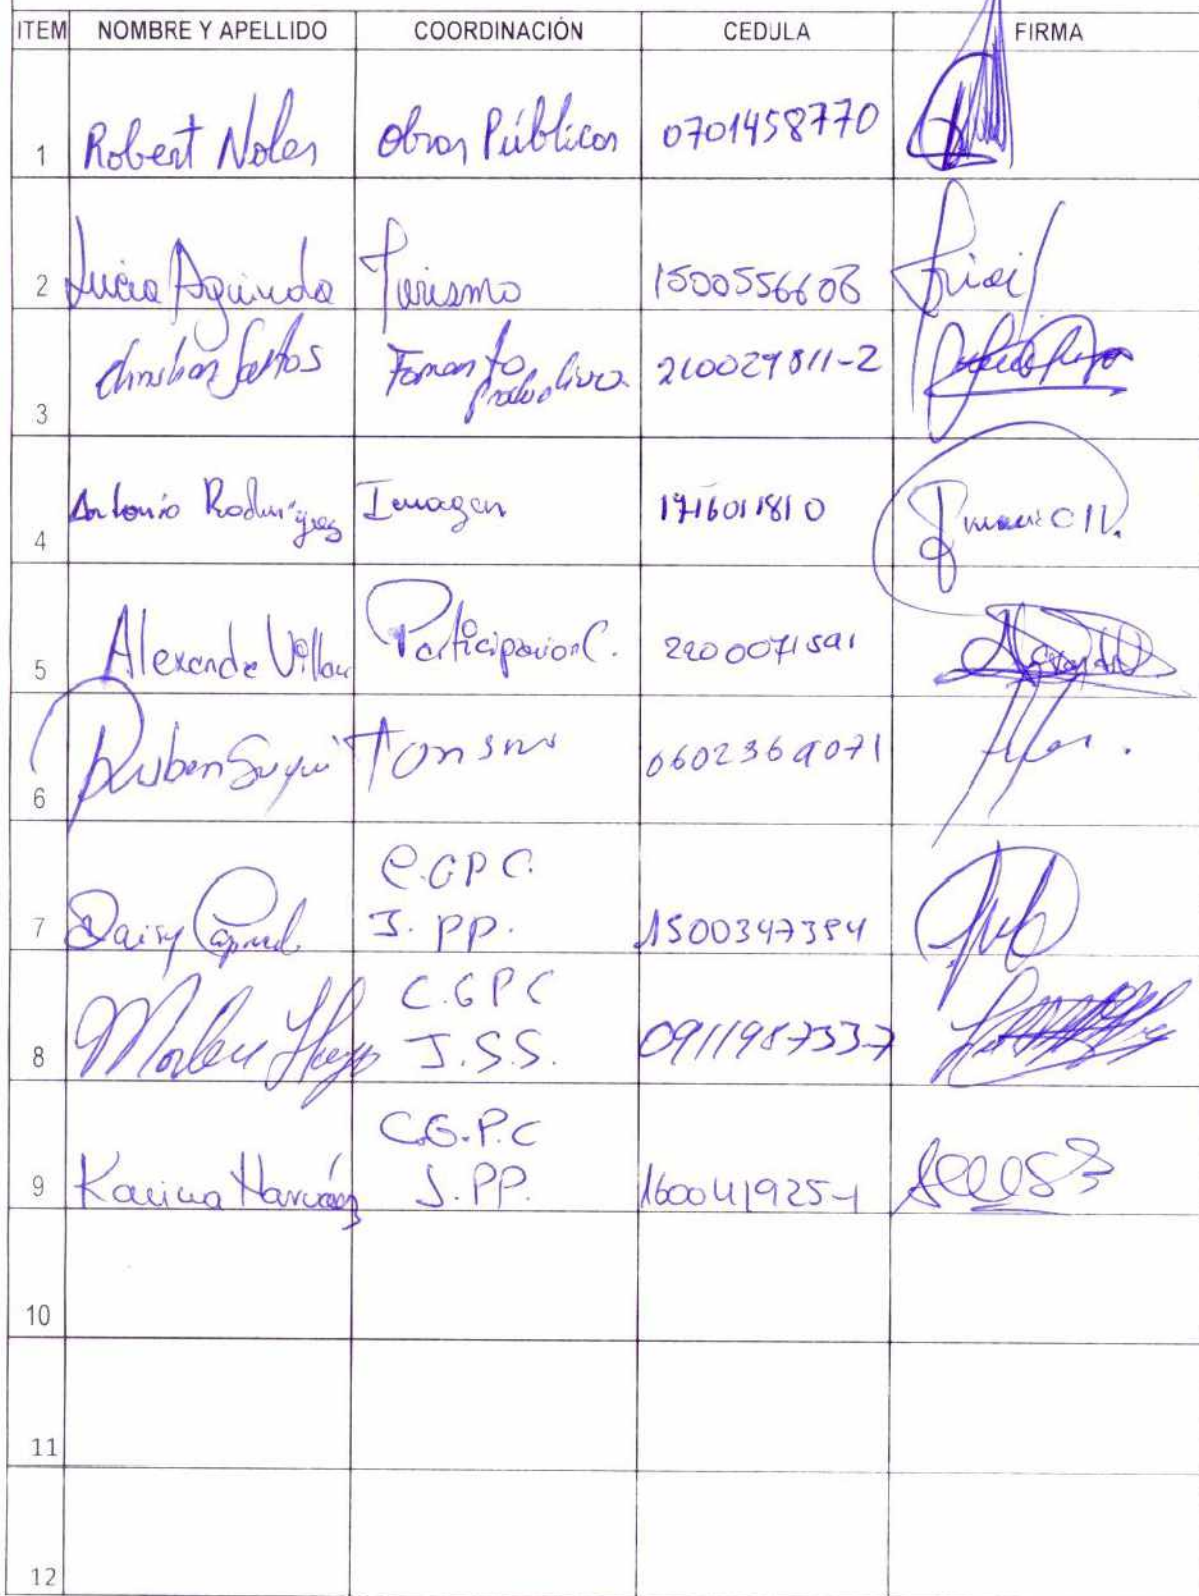 ITEM NOMBRE Y APELLIDO COORDINACIÓN CEDULA FIRMA
1 Robert Noles Obras Públicas 0701458770
2 Lucia Aguinda Turismo 1500556606
3 Fomento Productivo 210029811-2
4 Antonio Rodriguez Imagen 1716011810
5 Alexandra Participacion C. 2200071591
6 Ruben 0602369071
7 Daisy C.GPC. J. PP. 1500347394
8 C.GPC J.S.S. 0911987337
9 Karina Narváez C.G.P.C J.PP. 160041925-1
10
11
12